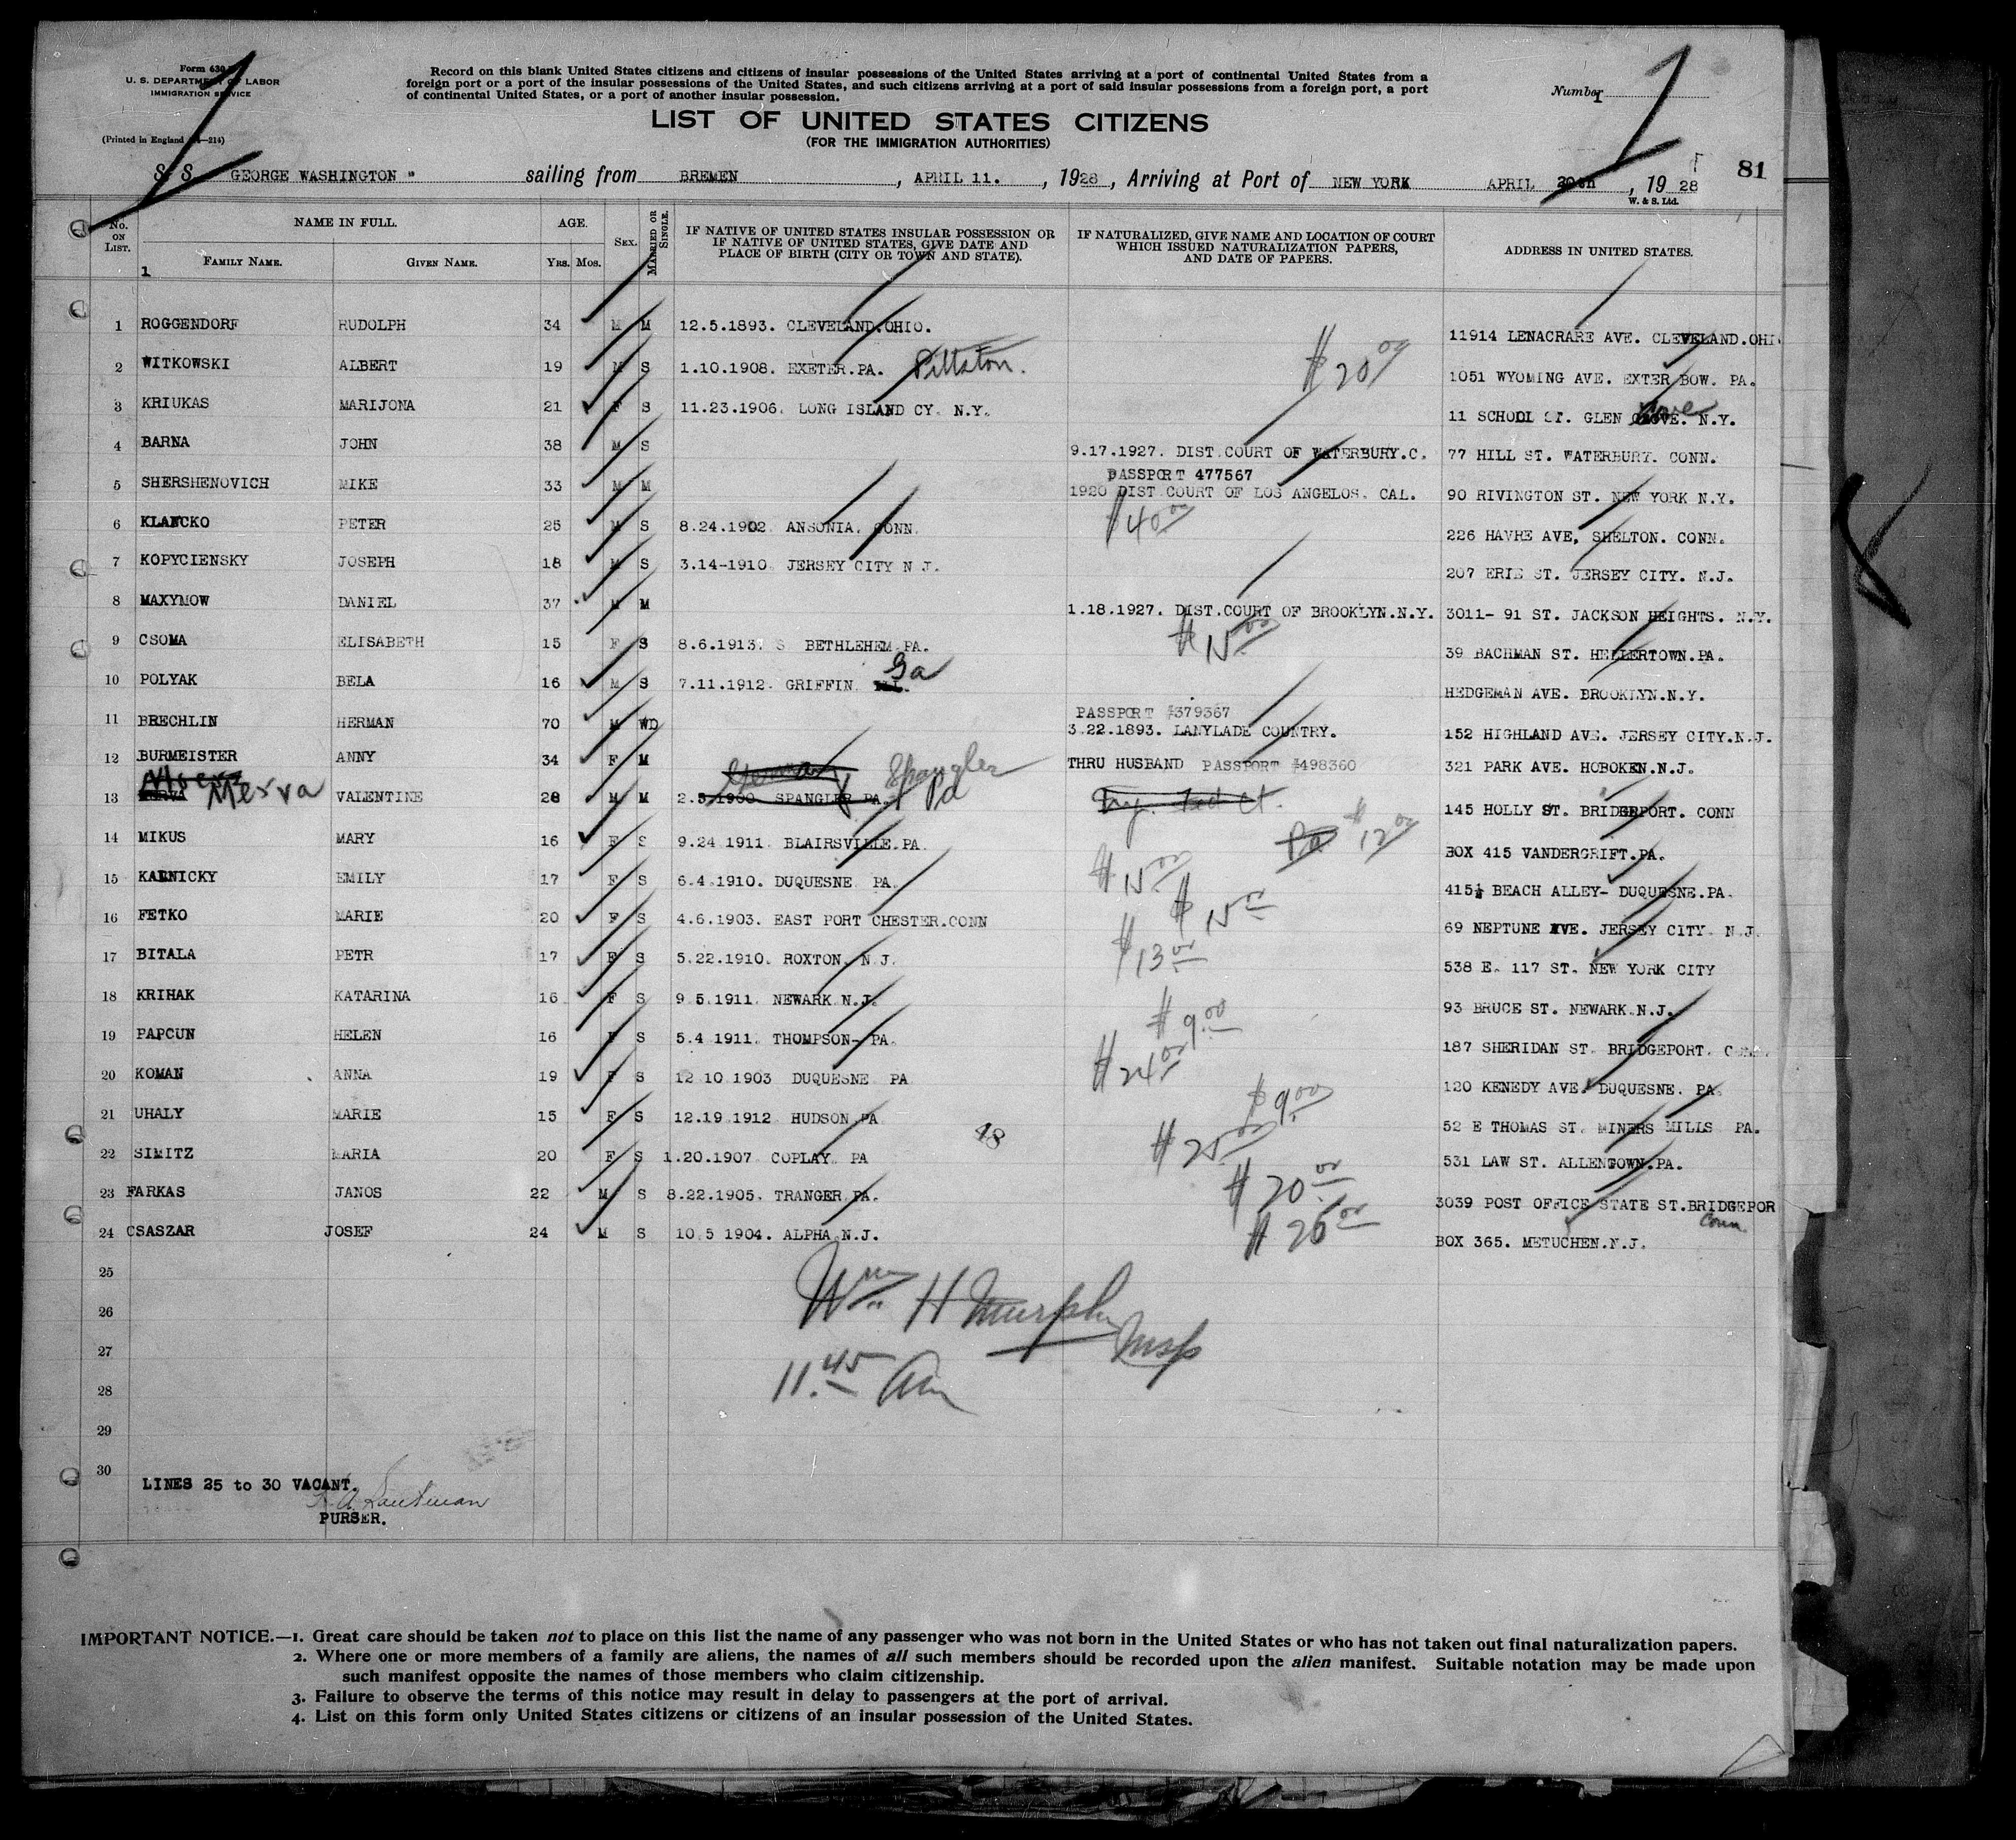 Form 630
U. S. DEPARTMENT OF LABOR
IMMIGRATION SERVICE
(Printed in England —214)
Record on this blank United States citizens and citizens of insular possessions of the United States arriving at a port of continental United States from a
foreign port or a port of the insular possessions of the United States, and such citizens arriving at a port of said insular possessions from a foreign port, a port
of continental United States, or a port of another insular possession.
Number 1
LIST OF UNITED STATES CITIZENS
(FOR THE IMMIGRATION AUTHORITIES)
81
S S GEORGE WASHINGTON " sailing from BREMEN , APRIL 11. , 1928 , Arriving at Port of NEW YORK APRIL 20th , 19 28
W. & S. Ltd.
No. ON LIST. NAME IN FULL. FAMILY NAME. GIVEN NAME. AGE. YRS. MOS. SEX. MARRIED OR SINGLE. IF NATIVE OF UNITED STATES INSULAR POSSESSION OR IF NATIVE OF UNITED STATES, GIVE DATE AND PLACE OF BIRTH (CITY OR TOWN AND STATE). IF NATURALIZED, GIVE NAME AND LOCATION OF COURT WHICH ISSUED NATURALIZATION PAPERS, AND DATE OF PAPERS. ADDRESS IN UNITED STATES.
1
1 ROGGENDORF RUDOLPH 34 M M 12.5.1893. CLEVELAND.OHIO. 11914 LENACRARE AVE. CLEVELAND.OHI
2 WITKOWSKI ALBERT 19 M S 1.10.1908. EXETER.PA. Pittston. $ 20 00 1051 WYOMING AVE. EXTER BOW. PA.
3 KRIUKAS MARIJONA 21 F S 11.23.1906. LONG ISLAND CY. N.Y. 11 SCHOOL ST. GLEN COVE. N.Y.
4 BARNA JOHN 38 M S 9.17.1927. DIST.COURT OF WATERBURY.C. 77 HILL ST. WATERBURY. CONN.
PASSPORT 477567
5 SHERSHENOVICH MIKE 33 M M 1920 DIST COURT OF LOS ANGELOS. CAL. 90 RIVINGTON ST. NEW YORK N.Y.
6 KLANCKO PETER 25 M S 8.24.1902 ANSONIA. CONN. $40 00 226 HAVRE AVE, SHELTON. CONN.
7 KOPYCIENSKY JOSEPH 18 M S 3.14-1910. JERSEY CITY N J. 207 ERIE ST. JERSEY CITY. N.J.
8 MAXYMOW DANIEL 37 M M 1.18.1927. DIST.COURT OF BROOKLYN.N.Y. 3011- 91 ST. JACKSON HEIGHTS. N.Y.
9 CSOMA ELISABETH 15 F S 8.6.1913. S BETHLEHEM.PA. $ 15 00 39 BACHMAN ST. HELLERTOWN.PA.
10 POLYAK BELA 16 M S 7.11.1912. GRIFFIN. Ga HEDGEMAN AVE. BROOKLYN.N.Y.
PASSPORT #379367
11 BRECHLIN HERMAN 70 M WD 3.22.1893. LANYLADE COUNTRY. 152 HIGHLAND AVE. JERSEY CITY.N.J.
12 BURMEISTER ANNY 34 F M THRU HUSBAND PASSPORT #498360 321 PARK AVE. HOBOKEN.N.J.
13 Merva VALENTINE 28 M M 2.5.1900 SPANGLER PA. Spangler Pa 145 HOLLY ST. BRIDGEPORT. CONN
14 MIKUS MARY 16 F S 9.24 1911. BLAIRSVILLE.PA. Pa $ 12 00 BOX 415 VANDERGRIFT.PA.
15 KARNICKY EMILY 17 F S 6.4.1910. DUQUESNE PA. $ 15 00 415½ BEACH ALLEY- DUQUESNE.PA.
16 FETKO MARIE 20 F S 4.6.1903. EAST PORT CHESTER.CONN $ 15 00 69 NEPTUNE AVE. JERSEY CITY. N J.
17 BITALA PETR 17 F S 5.22.1910. ROXTON. N J. $ 13 00 538 E. 117 ST. NEW YORK CITY
18 KRIHAK KATARINA 16 F S 9 5.1911. NEWARK N.J. 93 BRUCE ST. NEWARK.N.J.
19 PAPCUN HELEN 16 F S 5.4 1911. THOMPSON- PA. $ 9 00 187 SHERIDAN ST. BRIDGEPORT.
20 KOMAN ANNA 19 F S 12 10 1903 DUQUESNE PA $ 24 00 120 KENEDY AVE. DUQUESNE. PA.
21 UHALY MARIE 15 F S 12.19.1912 HUDSON PA 48 $ 9 00 52 E THOMAS ST. MINERS MILLS PA.
22 SIMITZ MARIA 20 F S 1.20.1907 COPLAY. PA $ 25 00 531 LAW ST. ALLENTOWN.PA.
23 FARKAS JANOS 22 M S 8.22.1905. TRANGER PA. $ 20 00 3039 POST OFFICE STATE ST.BRIDGEPOR Conn
24 CSASZAR JOSEF 24 M S 10 5 1904. ALPHA N.J. $ 26 00 BOX 365. METUCHEN.N.J.
25
26 Wm H Murphy Insp
27
28 11.45 am
29
30
LINES 25 to 30 VACANT.
PURSER.
IMPORTANT NOTICE.—1. Great care should be taken not to place on this list the name of any passenger who was not born in the United States or who has not taken out final naturalization papers.
2. Where one or more members of a family are aliens, the names of all such members should be recorded upon the alien manifest. Suitable notation may be made upon
such manifest opposite the names of those members who claim citizenship.
3. Failure to observe the terms of this notice may result in delay to passengers at the port of arrival.
4. List on this form only United States citizens or citizens of an insular possession of the United States.